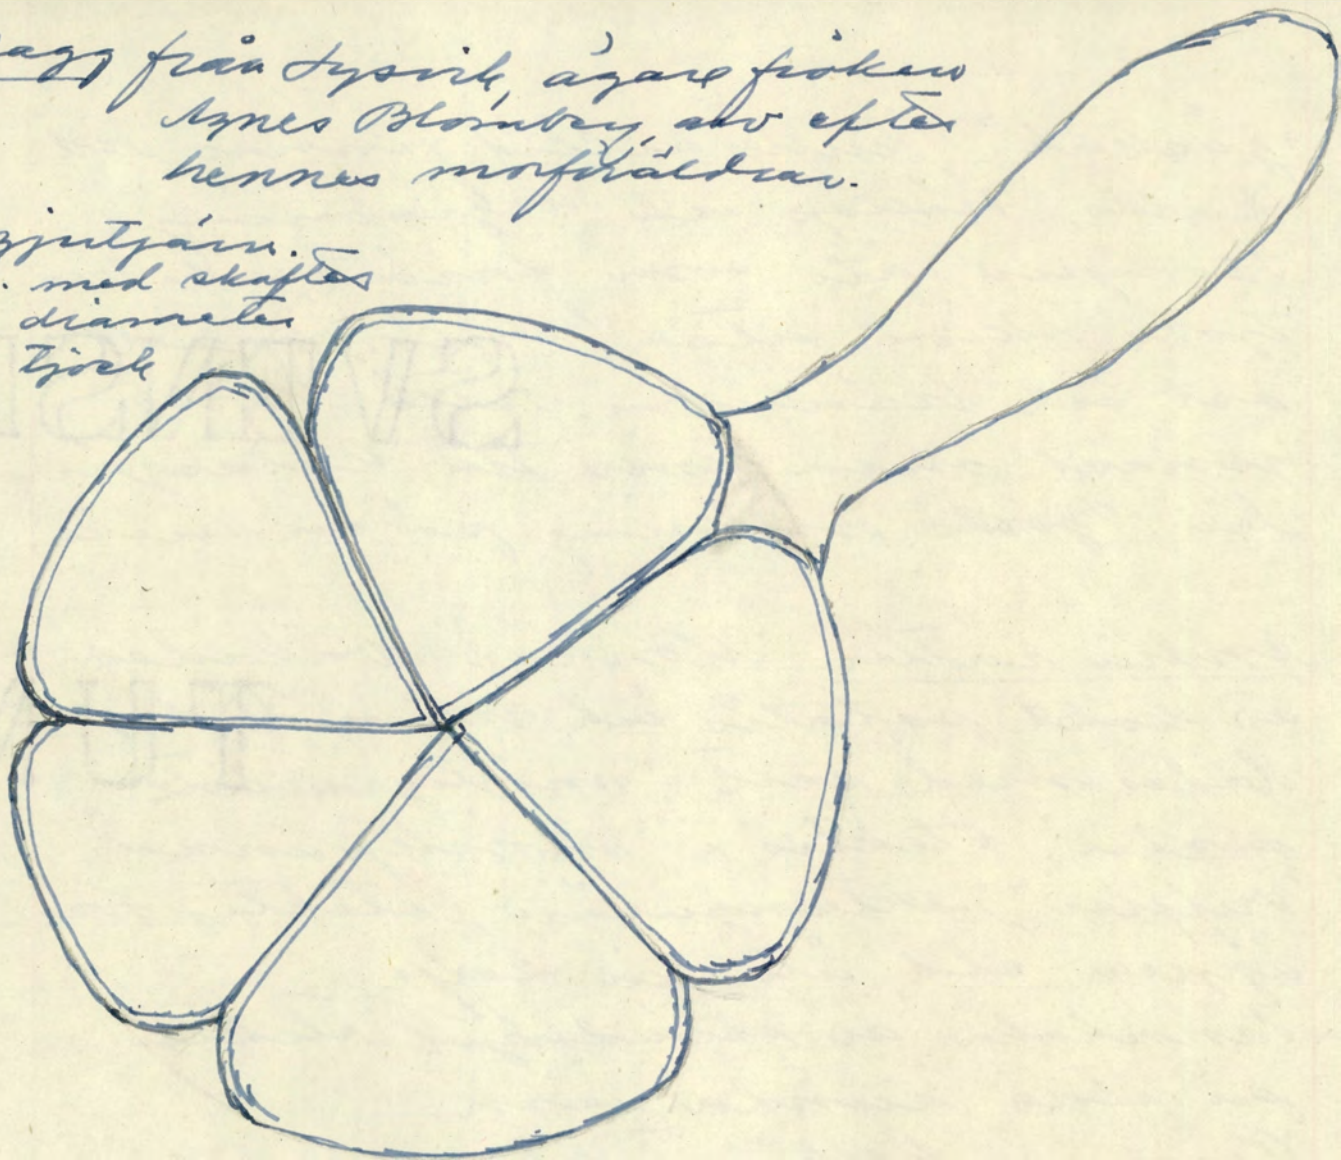 från Lysvik, ägare fröken
Agnes Blomberg, arv efter
hennes morföräldrar.
gjutjärn.
med skaftet
diameter
tjock